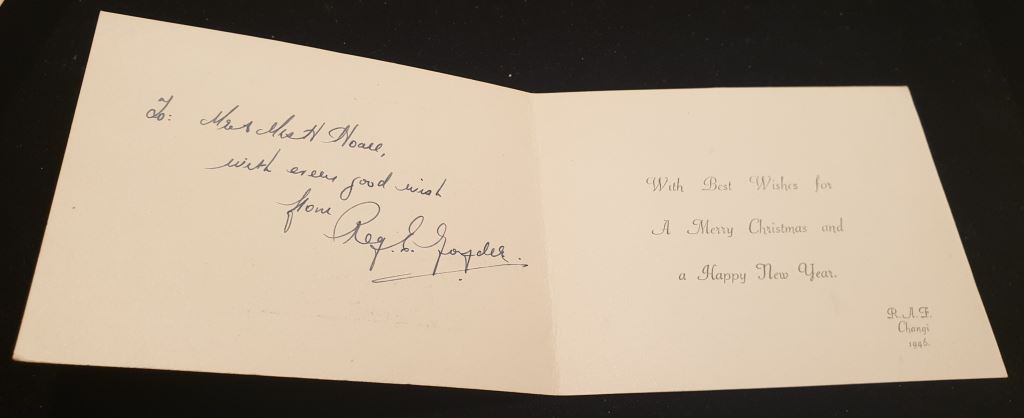 To: Mr & Mrs H Hoare,
with every good wish
from Reg. E. Goyder.
With Best Wishes for
A Merry Christmas and
a Happy New Year.
R.A.F.
Changi
1946.